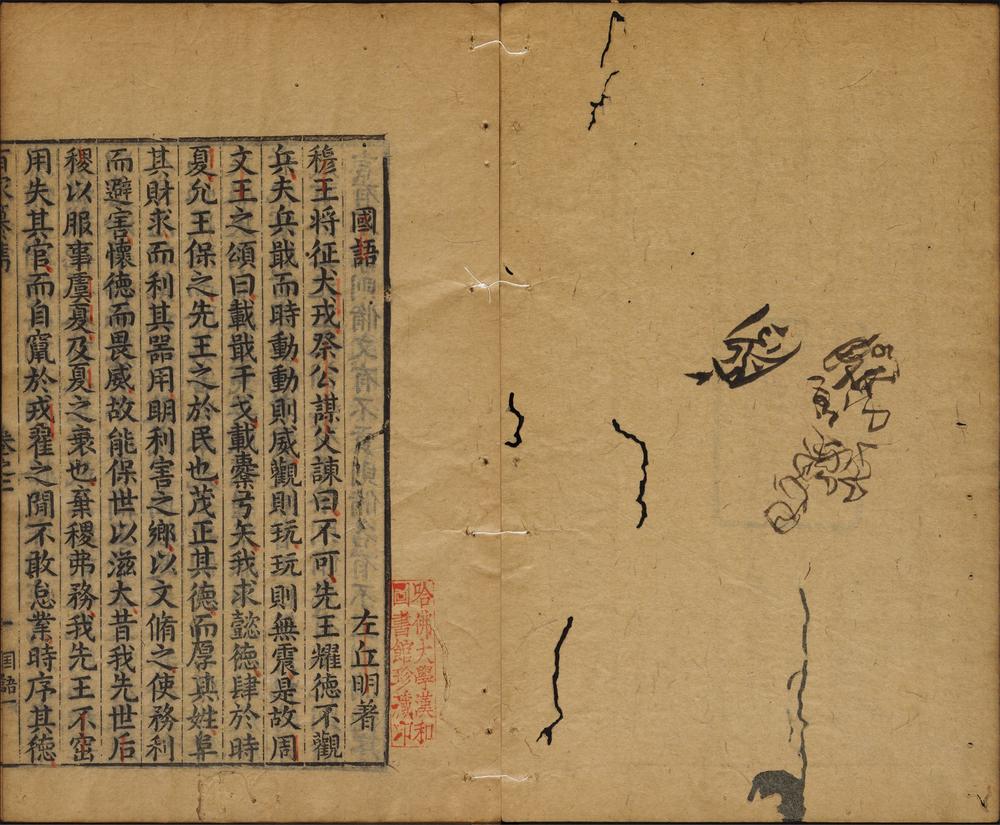 國語
左丘明著
穆王将征犬戎祭公謀父諫曰不可先王耀德不觀
兵夫兵戢而時動動則威觀則玩玩則無震是故周
文王之頌曰載戢干戈載櫜弓矢我求懿德肆於時
夏允王保之先王之於民也茂正其德而厚其姓阜
其財求而利其器用明利害之鄉以文脩之使務利
而避害懷德而畏威故能保世以滋大昔我先世后
稷以服事虞夏及夏之衰也棄稷弗務我先王不窋
用失其官而自竄於戎翟之間不敢怠業時序其德
卷之三
一
国語一
哈佛大學漢和
圖書館珍藏印